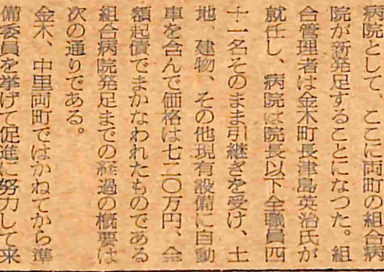 病院として、ここに両町の組合病
院が新発足することになつた。組
合管理者は金木町長津島英治氏が
就任し、病院は院長以下全職員四
十一名そのまま引継ぎを受け、土
地　建物、その他現有設備に自動
車を含んで価格は七二〇万円、全
額起債でまかなわれたものである
組合病院発足までの経過の概要は
次の通りである。
金木、中里両町ではかねてから準
備委員を挙げて促進に努力して来